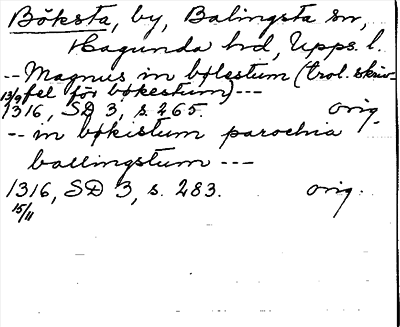 Böksta, by, Balingsta sn,
Hagunda hd, Upps. l.
-- Magnus in bølestum (trol. skriv-
fel för bøkestum) ---
13/9 1316, SD 3, s. 265. orig.
-- in bøkistum parochia
ballingstum ---
1316, SD 3, s. 283. orig.
15/11